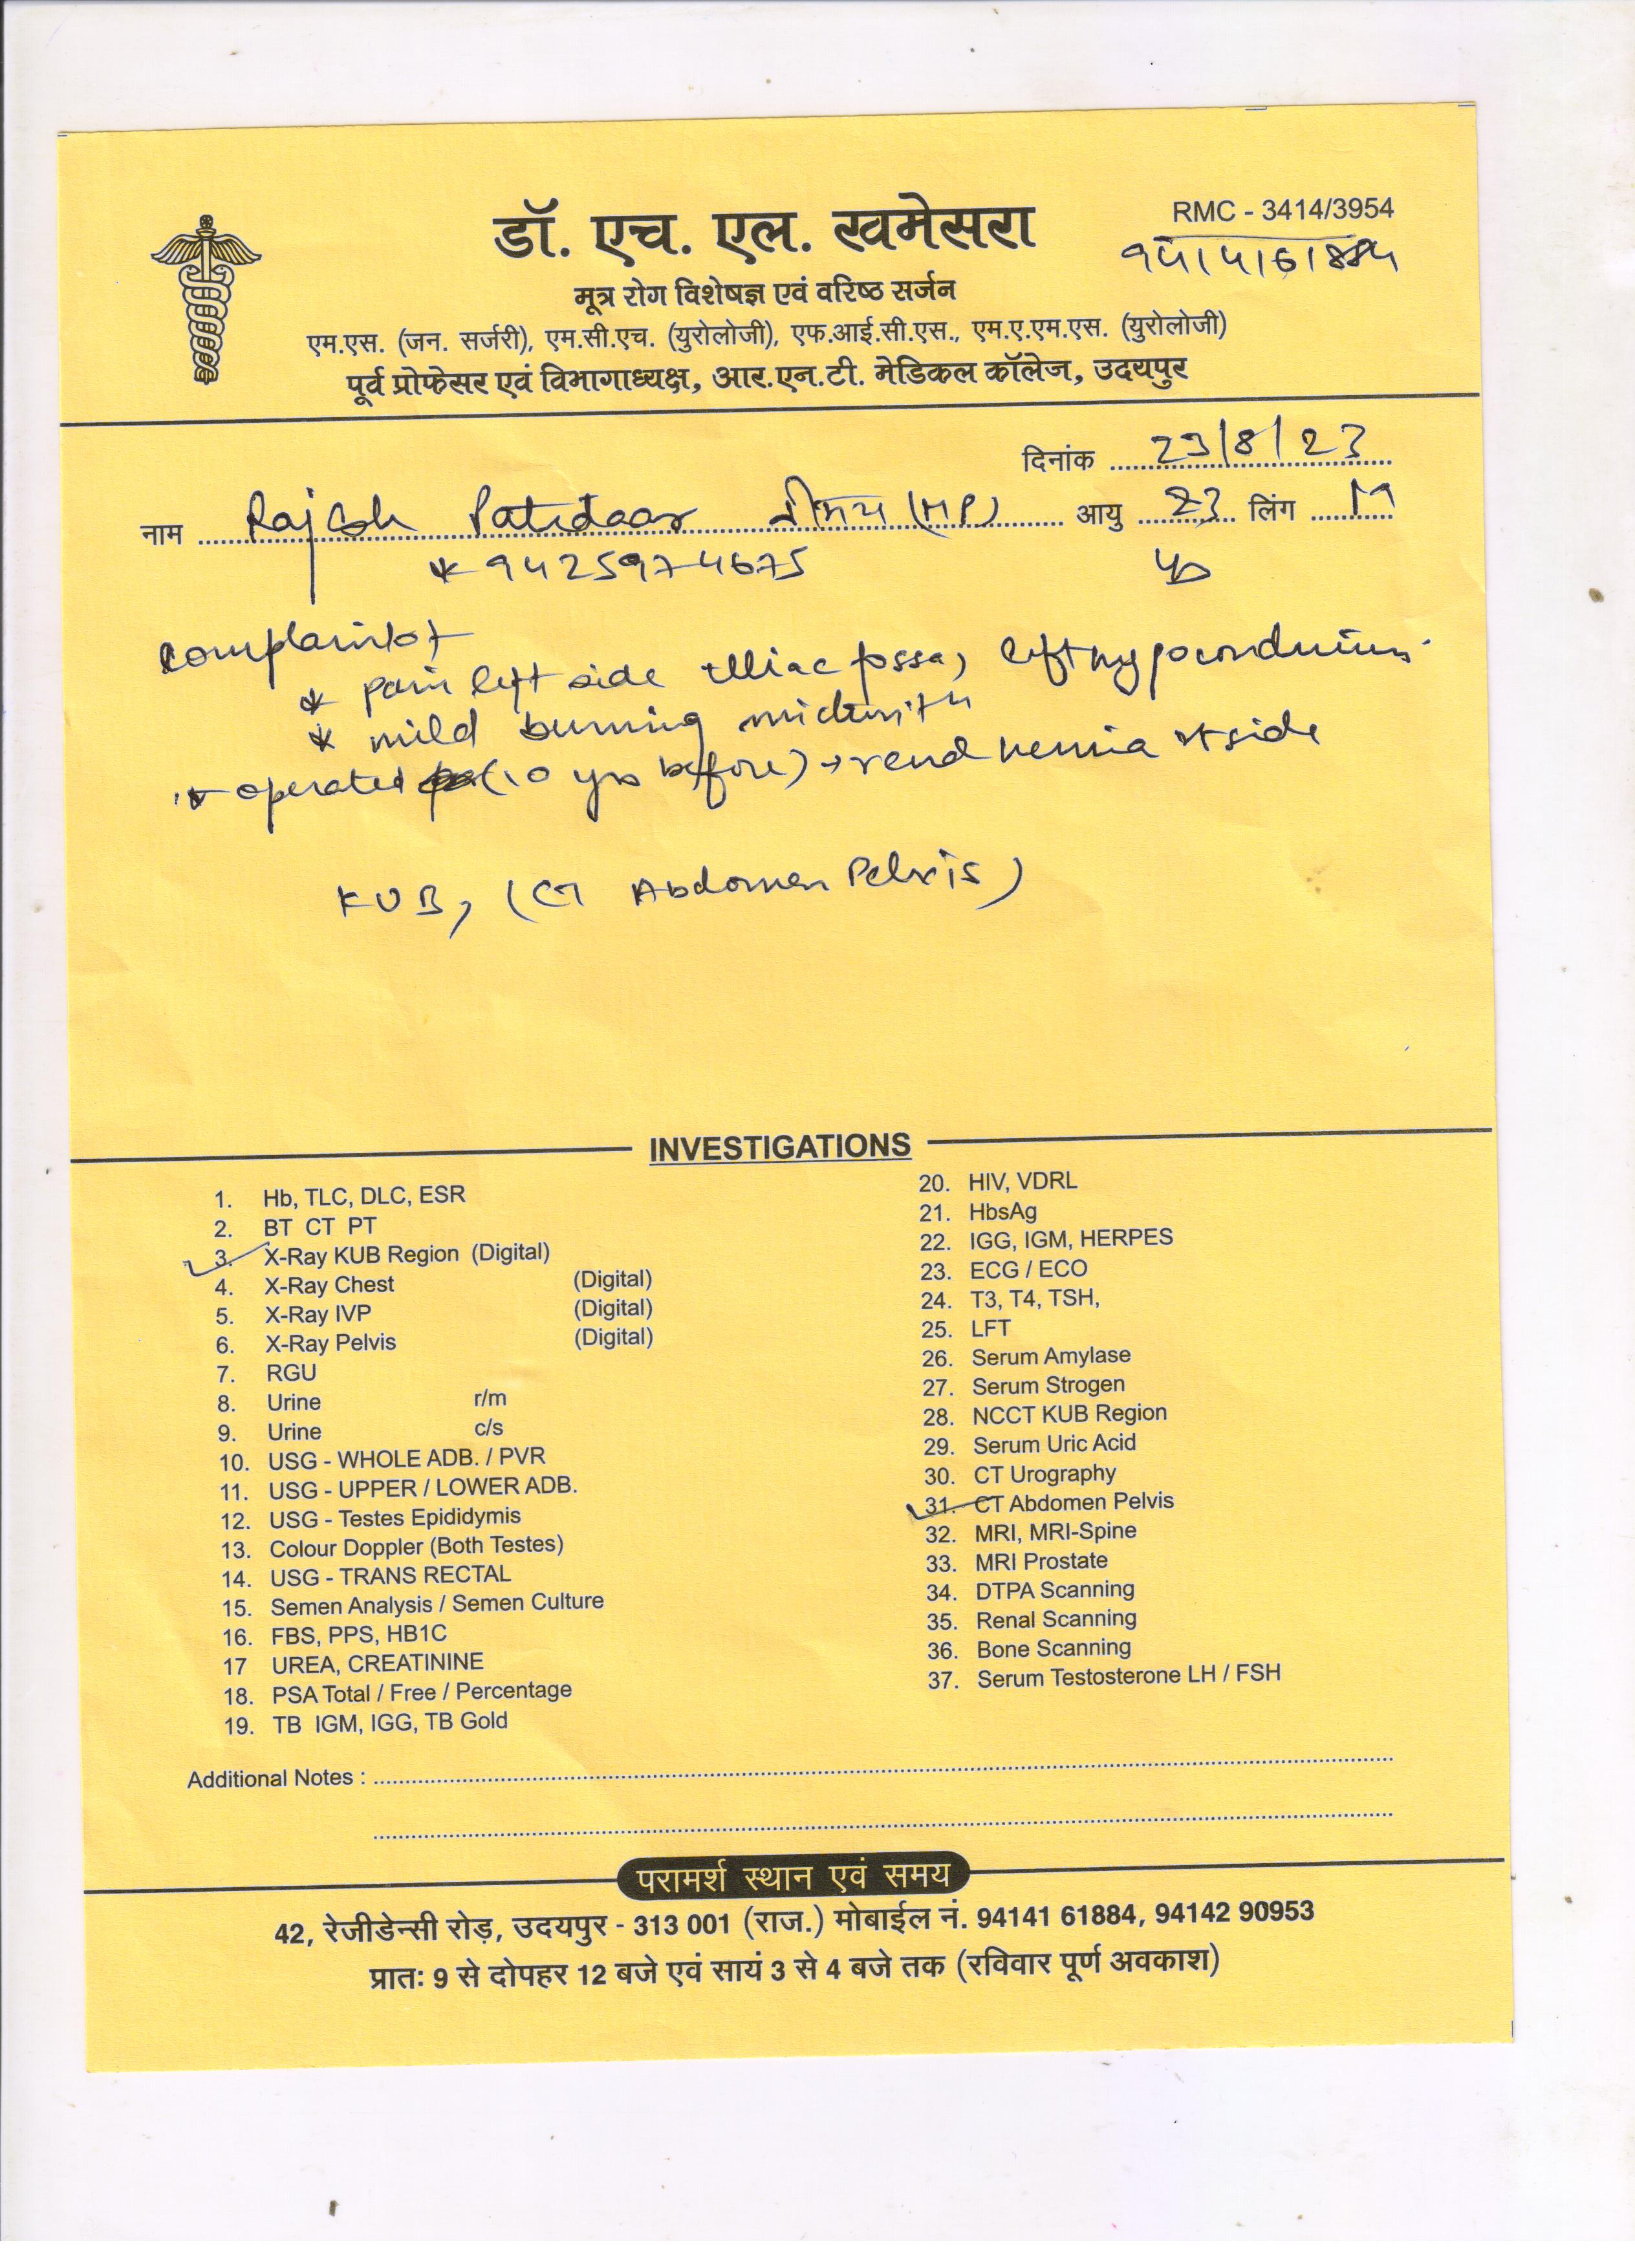 डॉ. एच. एल. खमेसरा
RMC - 3414/3954
9414161884
मूत्र रोग विशेषज्ञ एवं वरिष्ठ सर्जन
एम.एस. (जन. सर्जरी), एम.सी.एच. (युरोलोजी), एफ.आई.सी.एस., एम.ए.एम.एस. (युरोलोजी)
पूर्व प्रोफेसर एवं विभागाध्यक्ष, आर.एन.टी. मेडिकल कॉलेज, उदयपुर
दिनांक 23/8/23
नाम Rajesh Patidaar (MP) आयु 23 लिंग M
* 9425974675
complaint of
* pain left side illiac fossa, left hypocondrium.
* mild burning
* operated (10 yrs before) → hernia rt side
KUB, (CT Abdomen Pelvis)
INVESTIGATIONS
1. Hb, TLC, DLC, ESR
2. BT CT PT
3. X-Ray KUB Region (Digital)
4. X-Ray Chest (Digital)
5. X-Ray IVP (Digital)
6. X-Ray Pelvis (Digital)
7. RGU
8. Urine r/m
9. Urine c/s
10. USG - WHOLE ADB. / PVR
11. USG - UPPER / LOWER ADB.
12. USG - Testes Epididymis
13. Colour Doppler (Both Testes)
14. USG - TRANS RECTAL
15. Semen Analysis / Semen Culture
16. FBS, PPS, HB1C
17 UREA, CREATININE
18. PSA Total / Free / Percentage
19. TB IGM, IGG, TB Gold
20. HIV, VDRL
21. HbsAg
22. IGG, IGM, HERPES
23. ECG / ECO
24. T3, T4, TSH,
25. LFT
26. Serum Amylase
27. Serum Strogen
28. NCCT KUB Region
29. Serum Uric Acid
30. CT Urography
31. CT Abdomen Pelvis
32. MRI, MRI-Spine
33. MRI Prostate
34. DTPA Scanning
35. Renal Scanning
36. Bone Scanning
37. Serum Testosterone LH / FSH
Additional Notes :
परामर्श स्थान एवं समय
42, रेजीडेन्सी रोड़, उदयपुर - 313 001 (राज.) मोबाईल नं. 94141 61884, 94142 90953
प्रातः 9 से दोपहर 12 बजे एवं सायं 3 से 4 बजे तक (रविवार पूर्ण अवकाश)